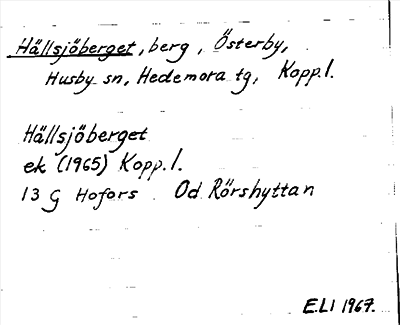 Hällsjöberget, berg, Österby,
Husby sn, Hedemora tg, Kopp. l.
Hällsjöberget
ek (1965) Kopp. l.
13 G Hofors Od Rörshyttan
E.LI 1967.